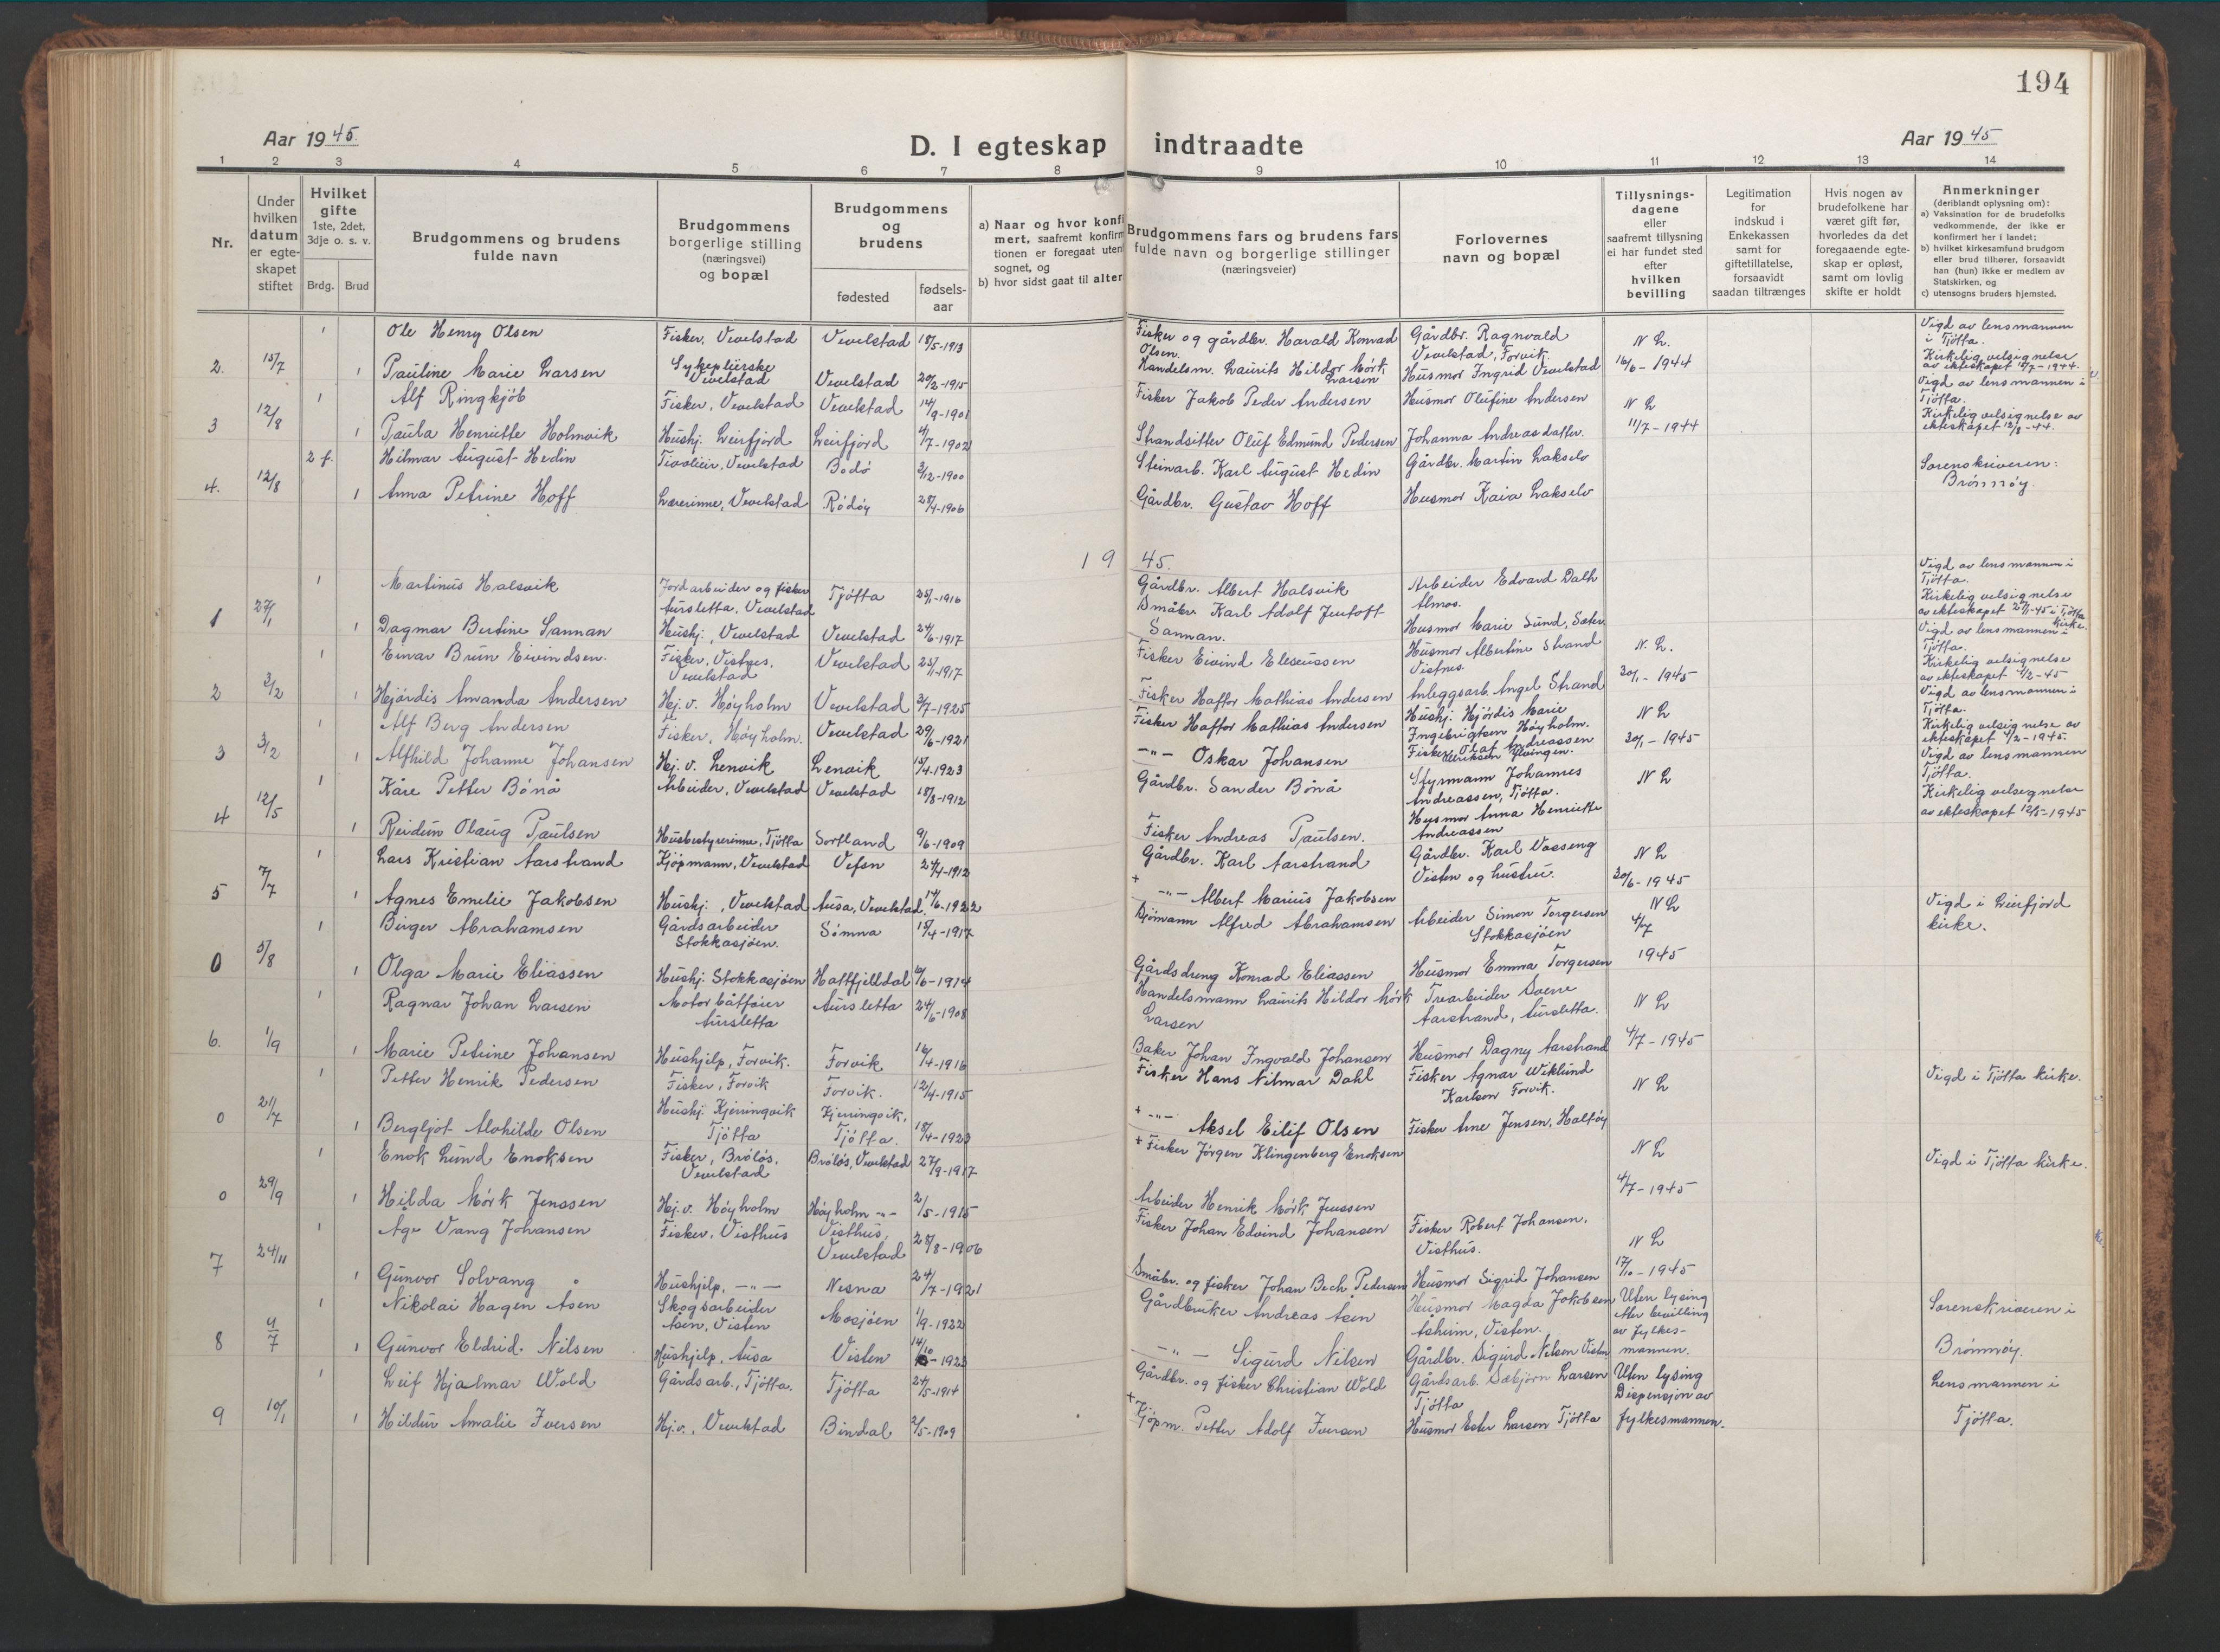 194
Aar 1945.
D. I egteskap indtraadte
Aar 1945
1 2 3 4 5 6 7 8 9 10 11 12 13 14
Nr.
Under hvilken datum er egteskapet stiftet
Hvilket gifte 1ste, 2det, 3dje o. s. v.
Brdg. Brud
Brudgommens og brudens fulde navn
Brudgommens borgerlige stilling (næringsvei) og bopæl
Brudgommens og brudens
fødested
fødsels-aar
a) Naar og hvor konfi
mert, saafremt konfirm
tionen er foregaat uten
sognet, og
b) hvor sidst gaat til alter
Brudgommens fars og brudens fars
fulde navn og borgerlige stillinger
(næringsveier)
Forlovernes
navn og bopæl
Tillysnings-
dagene
eller
saafremt tillysning
ei har fundet sted
efter
hvilken
bevilling
Legitimation
for
indskud i
Enkekassen
samt for
giftetillatelse,
forsaavidt
saadan tiltrænges
Hvis nogen av
brudefolkene har
været gift før,
hvorledes da det
foregaaende egte-
skap er opløst,
samt om lovlig
skifte er holdt
Anmerkninger
(deriblandt oplysning om):
a) Vaksination for de brudefolks
vedkommende, der ikke er
konfirmert her i landet;
b) hvilket kirkesamfund brudgom
eller brud tilhører, forsaavidt
han (hun) ikke er medlem av
Statskirken, og
c) utensogns bruders hjemsted.
1 Ole Henry Olsen Fisker, Vevelstad Vevelstad 18/5-1913 Fisker og gårdbr. Harald Konrad Olsen. Gårdbr. Ragnvald Vevelstad, Forvik. N L. Vigd av lensmannen i Tjötta.
2. 15/7 1 Pauline Marie Larsen Sykepleierske Vevelstad Vevelstad 20/2-1915 Handelsm. Laurits Hildor Mörk Larsen Husmor Ingrid Vevelstad 16/6-1944 Kirkelig velsignelse av ekteskapet 15/7-1944.
1 Alf Ringkjöb Fisker, Vevelstad Vevelstad 14/9-1901 Fisker Jakob Peder Andersen Husmor Olufine Andersen N L Vigd av lensmannen i Tjötta.
3 12/8 1 Paula Henriette Holmvik Hushj. Leirfjord Leirfjord 4/7-1902 Strandsitter Oluf Edmund Pedersen Johanna Andreasdatter. 11/7-1944 Kirkelig velsignelse av ekteskapet 12/8-44.
2 f. Hilmar August Hedin Vevelstad Bodö 3/12-1900 Steinarb. Karl August Hedin Gårdbr. Martin Lakselv Sorenskriveren:
4. 12/8 1 Anna Petrine Hoff Lærerinne, Vevelstad Rödöy 28/4-1906 Gårdbr. Gustav Hoff Husmor Kaia Lakselv Brönnöy.
1945.
1 Martinus Halsvik Jordarbeider og fisker Aursletta, Vevelstad Tjötta 25/1-1916 Gårdbr. Albert Halsvik Arbeider Edvard Dalh Almos. Vigd av lensmannen i Tjötta.
1 27/1 1 Dagmar Berdine Sannan Hushj., Vevelstad Vevelstad 24/6-1917 Småbr. Karl Adolf Jentoft Sannan. Husmor Marie Sund, Kirkelig velsignelse av ekteskapet 27/1-45 i Tjötta kirke.
1 Einar Brun Eivindsen. Fisker, Vistnes. Vevelstad Vevelstad 25/1-1917 Fisker Eivind Eleseussen Husmor Albertine Strand Vistnes. N. L. Vigd av lensmannen i Tjötta.
2 3/2 1 Hjördis Amanda Andersen Hj. v. Höyholm Vevelstad 3/7-1925 Fisker Haftor Mathias Andersen Anleggsarb. Angel Strand 20/1-1945 Kirkelig velsignelse av ekteskapet 4/2-45
1 Alf Berg Andersen Fisker, Höyholm. Vevelstad 29/6-1921 Fisker Haftor Mathias Andersen Hushj. Hjördis Marie Ingebrigtsen Höyholm. N L Vigd av lensmannen i Tjötta.
3 3/2 1 Alfhild Johanne Johansen Hj. v. Lenvik Lenvik 15/4-1923 -"- Oskar Johansen Fisker Olaf Andreassen 20/1-1945 Kirkelig velsignelse av ekteskapet 4/2-1945.
1 Kåre Petter Bönå Arbeider, Vevelstad Vevelstad 18/8-1912 Gårdbr. Sander Bönå Styrmann Johannes Andreassen, Tjötta. N L Vigd av lensmannen Tjötta.
4 12/5 1 Reidun Olaug Paulsen Husbestyrerinne, Tjötta Sortland 9/6-1909 Fisker Andreas Paulsen. Husmor Anna Henriette Andreassen Kirkelig velsignelse av ekteskapet 12/5-1945
1 Lars Kristian Aarstrand Kjöpmann, Vevelstad Vefsn 24/4-1912 Gårdbr. Karl Aarstrand Gårdbr. Karl Vasseng Visten og hustru. N L
5 7/7 1 Agnes Emelie Jakobsen Hushj., Vevelstad Ausa, Vevelstad. 17/6-1922 + -"- Albert Marius Jakobsen 30/6-1945
1 Birger Abrahamsen Gårdsarbeider Stokkasjöen. Sömna 15/4-1917 Sjömann Alfred Abrahamsen Arbeider Simon Torgersen Stokkasjöen N L 4/7 Vigd i Leirfjord kirke.
0 5/8 1 Olga Marie Eliassen Hushj. Stokkasjöen Hattfjelldal 6/6-1914 Gårdsdreng Konrad Eliassen Husmor Emma Torgersen 1945
1 Ragnar Johan Larsen Motorbåtförer Aursletta Aursletta 24/6-1908 Handelsmann Laurits Hildor Mörk Larsen Trearbeider Sverre Aarstrand, Aursletta. N L
6. 1/9 1 Marie Petrine Johansen Hushjelp, Forvik. Forvik 16/4-1916 Baker Johan Ingvald Johansen Husmor Dagny Aarstrand 4/7-1945
1 Petter Henrik Pedersen Fisker, Forvik Forvik. 12/4-1915 Fisker Hans Nilmar Dahl Fisker Agnar Wiklund Karlsen Forvik. N L Vigd i Tjötta kirke.
0 21/7 1 Bergljot Alvhilde Olsen Hushj. Kjerringvik Tjötta Kjerringvik, Tjötta. 18/4-1923 + -"- Aksel Eilif Olsen Fisker Arne Jensen, Haltöy
1 Enok Lund Enoksen Fisker, Brölös, Vevelstad Brölös, Vevelstad 27/9-1917 + Fisker Jörgen Klingenberg Enoksen N L Vigd i Tjötta kirke.
0 29/9 1 Hilda Mörk Jenssen Hj. v. Höyholm Höyholm -"- 2/5-1915 Arbeider Henrik Mörk Jenssen 4/7-1945
1 Åge Vang Johansen Fisker, Visthus Visthus, Vevelstad 28/8-1906 Fisker Johan Edvind Johansen Fisker Robert Johansen, Visthus. N L
7 24/11 1 Gunvor Solvang Hushjelp, -"- Nesna 24/7-1921 Småbr. og fisker Johan Bech Pedersen Husmor Sigrid Johansen 17/10-1945
1 Nikolai Hagen Åsen Skogsarbeider Åsen, Visten Mosjöen 1/9-1922 Gårdbruker Andreas Åsen Husmor Magda Jakobsen Åsheim, Visten. Uten lysing etter bevilling av fylkes- Sorenskriveren i
8 4/7 1 Gunvor Eldrid Nilsen Hushjelp, Ausa Visten 14/10-1923 -"- Sigurd Nilsen Gårdbr. Sigurd Nilsen Visten mannen. Brönnöy.
1 Leif Hjalmar Wold Gårdsarb., Tjötta. Tjötta 24/5-1914 Gårdbr. og fisker Christian Wold Gårdsarb. Sæbjörn Larsen Tjötta Uten lysing Dispensjon av Lensmannen i
9 10/1 1 Hildur Amalie Iversen Hj.v., Vevelstad Bindal 2/5-1909 + Kjöpm. Petter Adolf Iversen Husmor Ester Larsen Tjötta fylkesmannen. Tjötta.